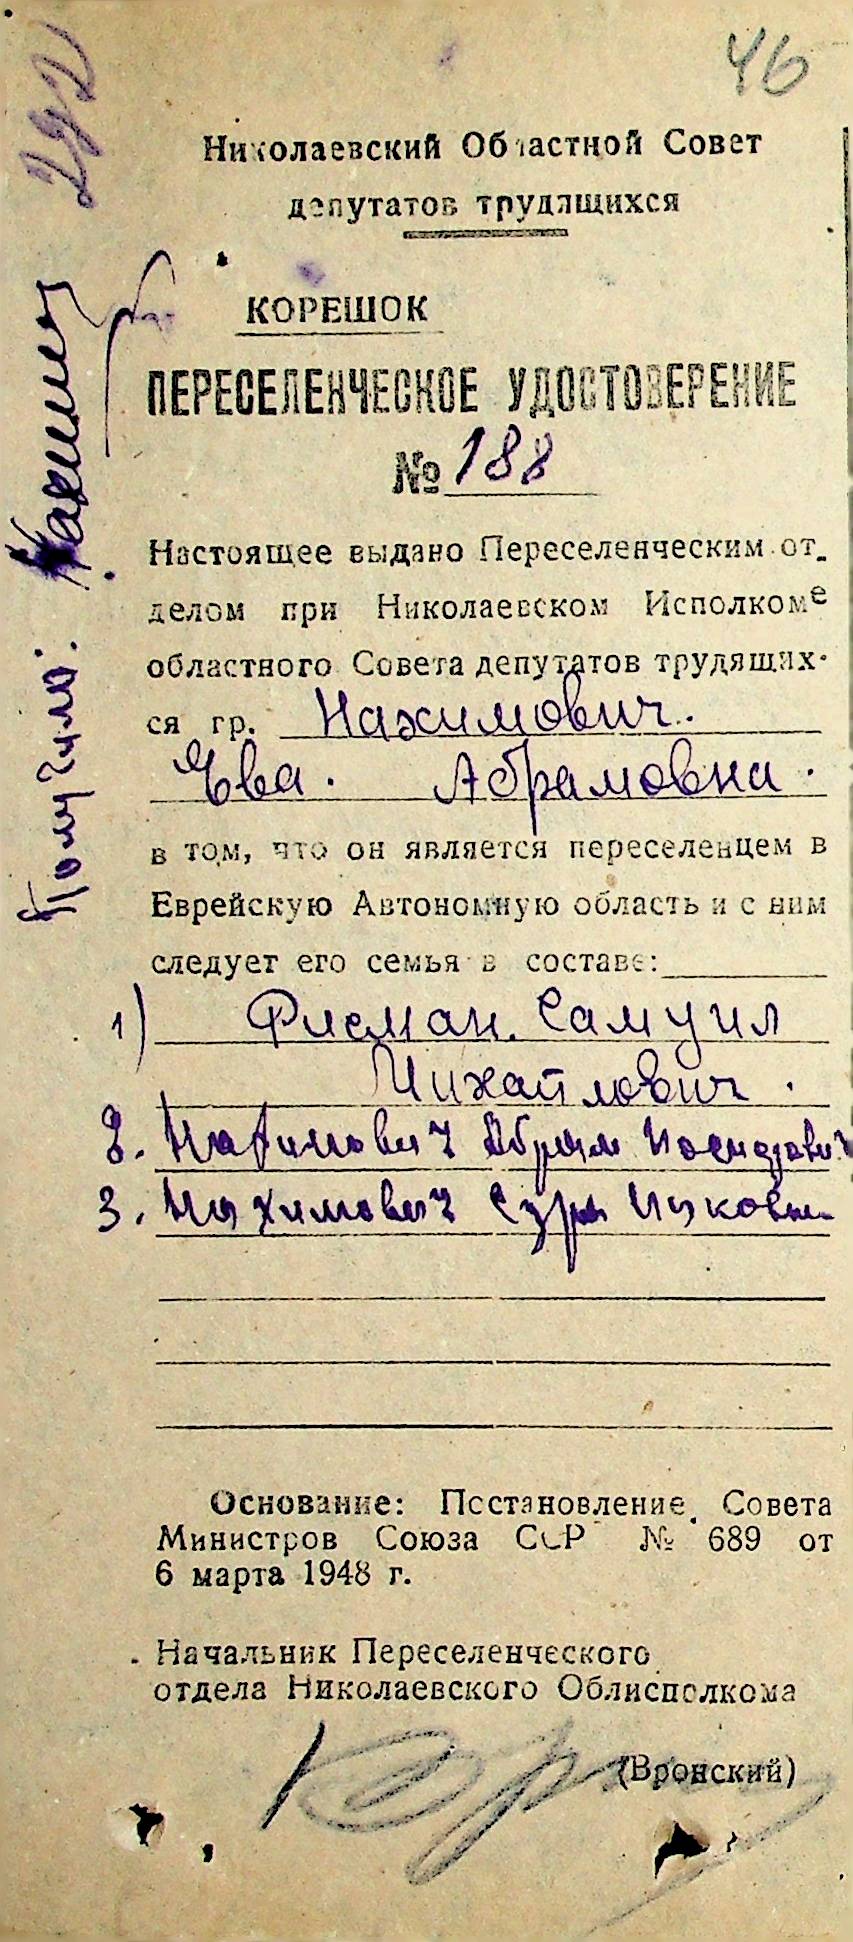 46
292
Николаевский Областной Совет
депутатов трудящихся
КОРЕШОК
ПЕРЕСЕЛЕНЧЕСКОЕ УДОСТОВЕРЕНИЕ
№ 188
Настоящее выдано Переселенческим от-
делом при Николаевском Исполкоме
областного Совета депутатов трудящих-
ся гр. Нахимович.
Ева. Абрамовна.
в том, что он является переселенцем в
Еврейскую Автономную область и с ним
следует его семья в составе:
1) Фисман. Самуил
Михайлович.
2. Нахимович Абрам
3. Нахимович Сура Ицковна
Основание: Постановление Совета
Министров Союза ССР № 689 от
6 марта 1948 г.
Начальник Переселенческого
отдела Николаевского Облисполкома
(Вронский)
Получила: